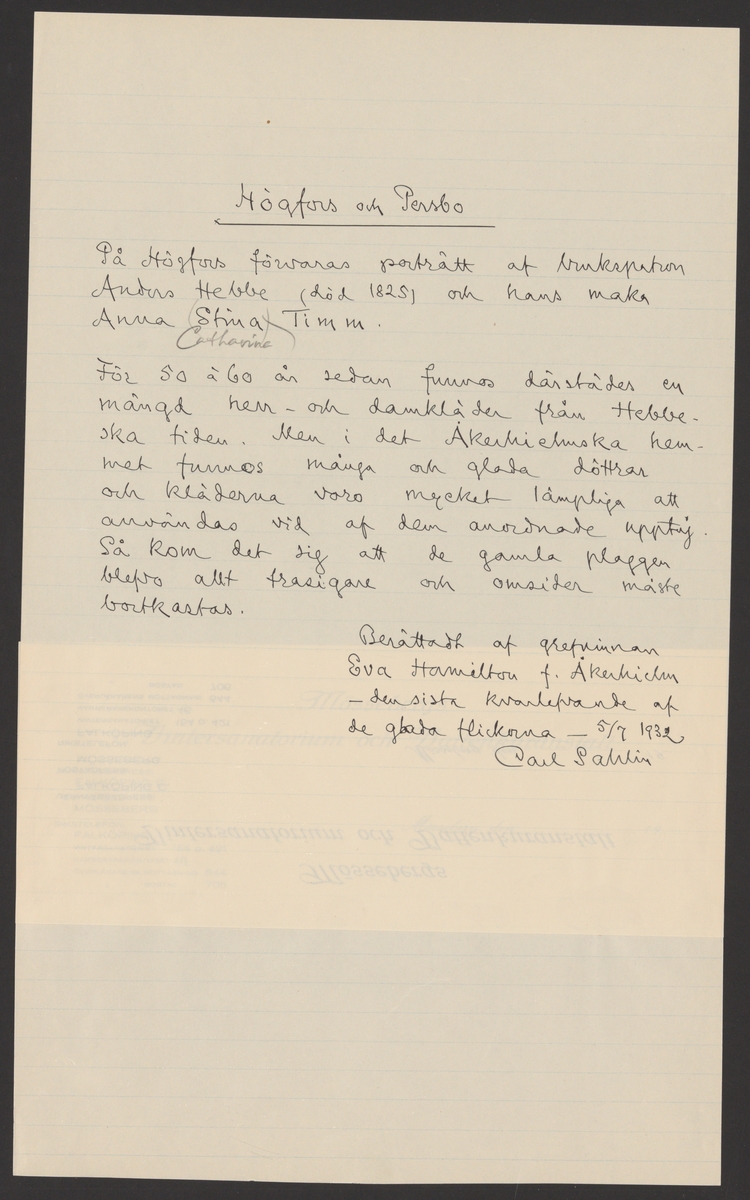 Högfors och Persbo
På Högfors förvaras porträtt af brukspatron
Anders Hebbe (död 1825) och hans maka
Anna (Stina) Timm.
Catharina
För 50 à 60 år sedan funnos därstädes en
mängd herr- och damkläder från Hebbe-
ska tiden. Men i det Åkerhielmska hem-
met funnos många och glada döttrar
och kläderna voro mycket lämpliga att
användas vid af dem anordnade upptåg.
Så kom det sig att de gamla plaggen
blefvo allt trasigare och omsider måste
bortkastas.
Berättadt af grefvinnan
Eva Hamilton f. Åkerhielm
– den sista kvarlefvande af
de glada flickorna – 5/7 1932
Carl Sahlin
Vintersanatorium och Vattenkuranstalt
Mössebergs